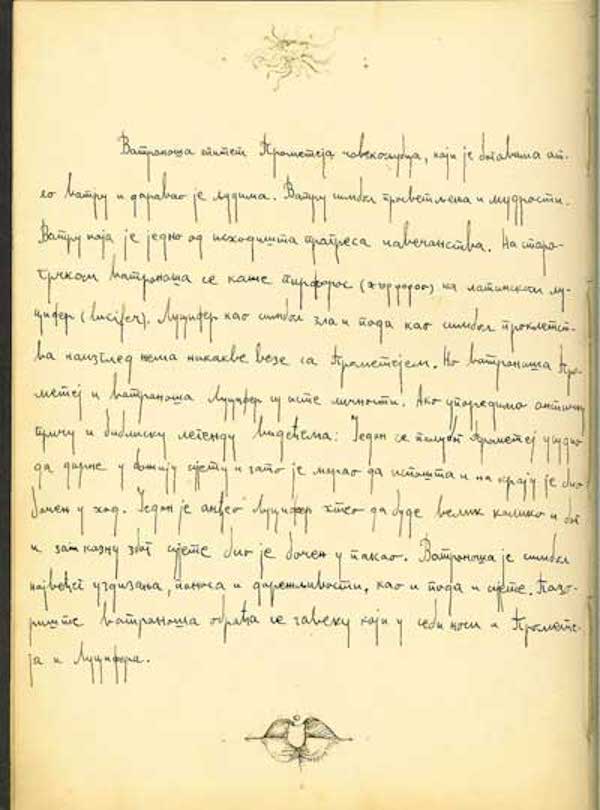 Ватроноша епитет Прометеја човекољубца, који је боговима от-
ео ватру и даровао је људима. Ватру симбол просветљења и мудрости.
Ватру која је једно од исходишта прогреса човечанства. На старо-
грчком ватроноша се каже пирфорос на латинском лу-
цифер (lucifer). Луцифер као симбол зла и пада као симбол проклетст-
ва наизглед нема никакве везе са Прометејем. Но ватроноша Про-
метеј и ватроноша Луцифер су исте личности. Ако упоредимо античку
причу и библиску легенду видећемо: Једон се полубог Прометеј усудио
да дирне у божију сујету и зато је морао да испашта и на крају је био
бачен у хад. Једон је анђео Луцифер хтео да буде велик колико и бог
и за казну због сујете био је бачен у пакао. Ватроноша је симбол
највећег уздизања, поноса и дарежљивости, као и пада и сујете. Позо-
риште ватроноша обраћа се човеку који у себи носи и Прометe-
ја и Луцифера.